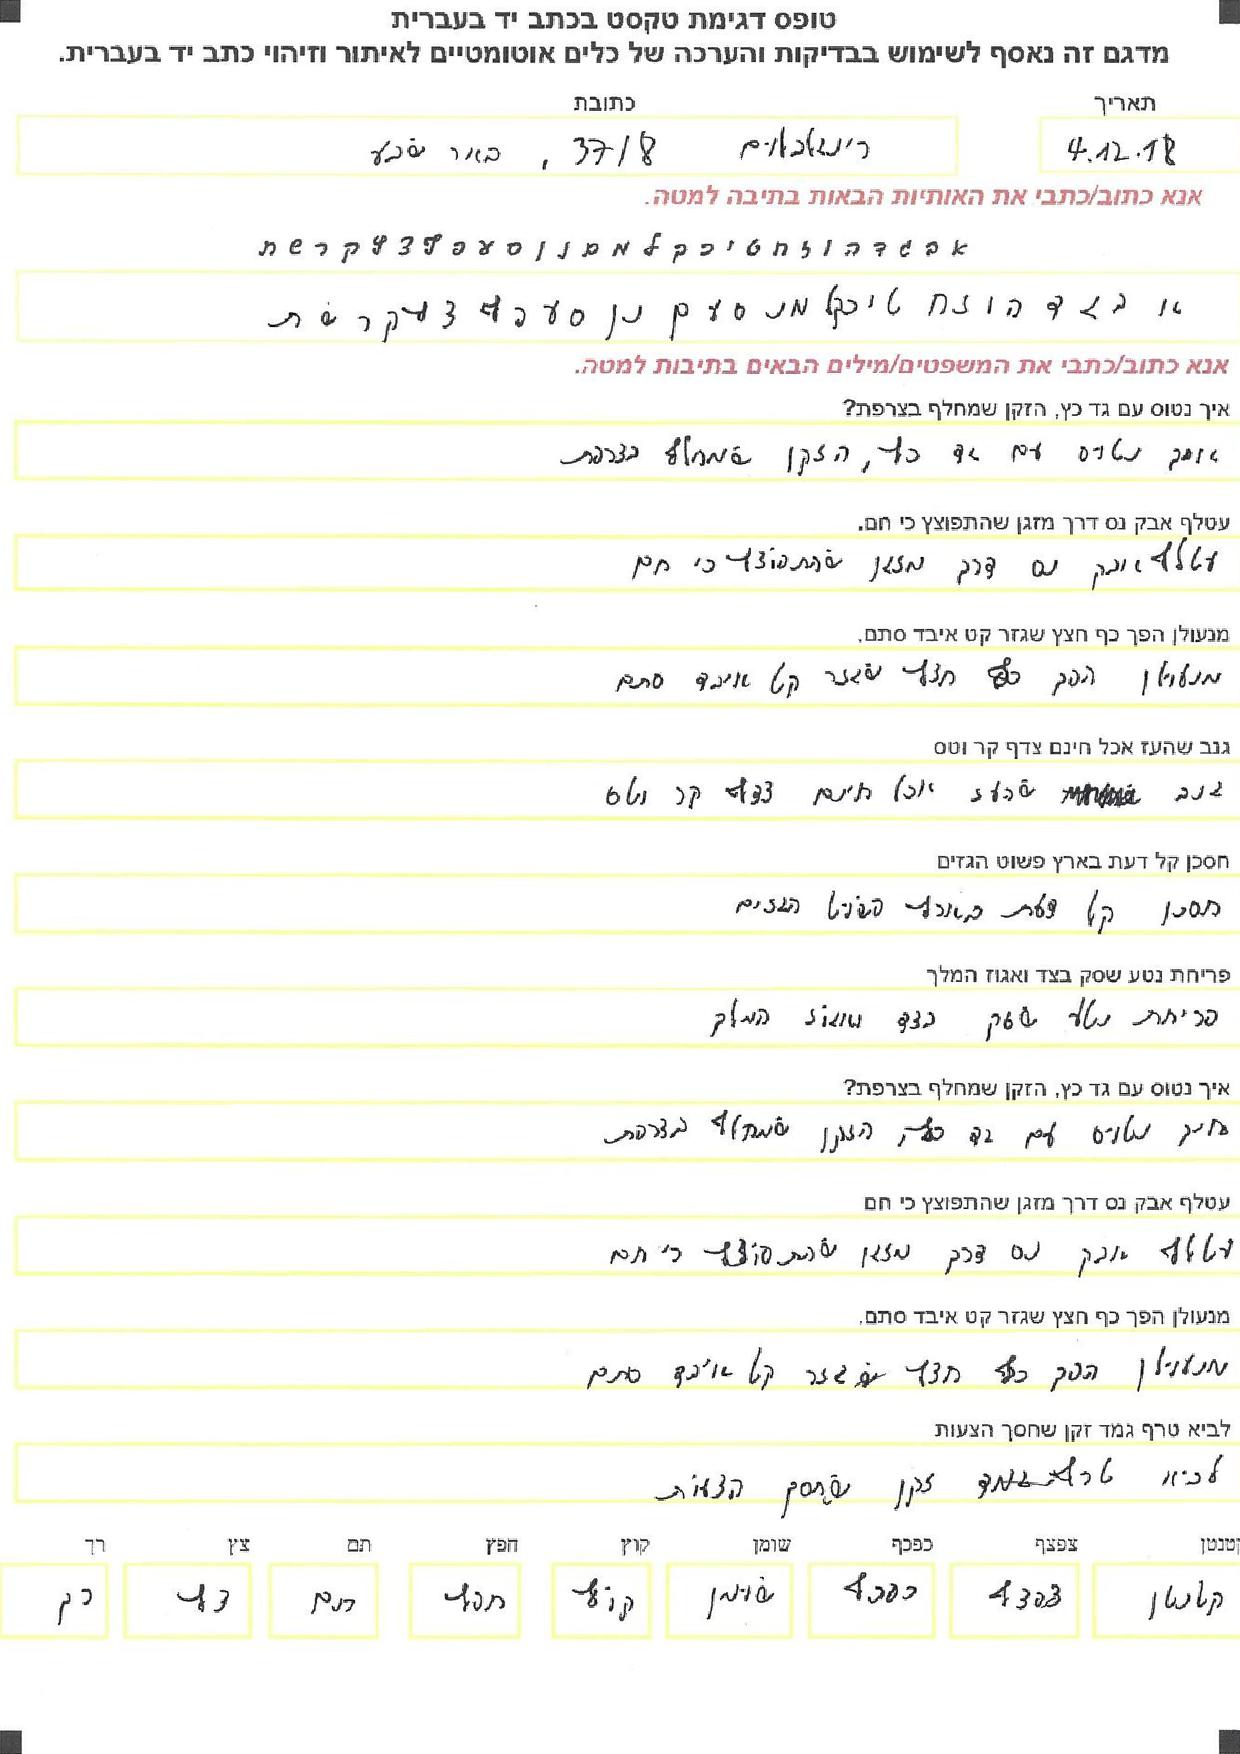 טופס דגימת טקסט בכתב יד בעברית
מדגם זה נאסף לשימוש בבדיקות והערכה של כלים אוטומטיים לאיתור וזיהוי כתב יד בעברית.
תאריך כתובת
4.12.18 רינגלבלום 37/8, באר שבע
אנא כתוב/כתבי את האותיות הבאות בתיבה למטה.
א ב ג ד ה ו ז ח ט י כ ך ל מ ם נ ן ס ע פ ף צ ץ ק ר ש ת
א ב ג ד ה ו ז ח ט י כ ך ל מ נ ס ע ם נ ן ס ע פ ף צ ץ ק ר ש ת
אנא כתוב/כתבי את המשפטים/מילים הבאים בתיבות למטה.
איך נטוס עם גד כץ, הזקן שמחלף בצרפת?
איך נטוס עם גד כץ, הזקן שמחלף בצרפת
עטלף אבק נס דרך מזגן שהתפוצץ כי חם.
עטלף אבק נס דרך מזגן שהתפוצץ כי חם
מנעולן הפך כף חצץ שגזר קט איבד סתם.
מנעולן הפך כף חצץ שגזר קט איבד סתם
גנב שהעז אכל חינם צדף קר וטס
גנב שהעז אכל חינם צדף קר וטס
חסכן קל דעת בארץ פשוט הגזים
חסכן קל דעת בארץ פשוט הגזים
פריחת נטע שסק בצד ואגוז המלך
פריחת נטע שסק בצד ואגוז המלך
איך נטוס עם גד כץ, הזקן שמחלף בצרפת?
איך נטוס עם גד כץ, הזקן שמחלף בצרפת
עטלף אבק נס דרך מזגן שהתפוצץ כי חם
עטלף אבק נס דרך מזגן שהתפוצץ כי חם
מנעולן הפך כף חצץ שגזר קט איבד סתם.
מנעולן הפך כף חצץ שגזר קט איבד סתם
לביא טרף גמד זקן שחסך הצעות
לביא טרף גמד זקן שחסך הצעות
קטנטן צפצף כפכף שומן קוץ חפץ תם צץ רך
קטנטן צפצף כפכף שומן קוץ חפץ תם צץ רך